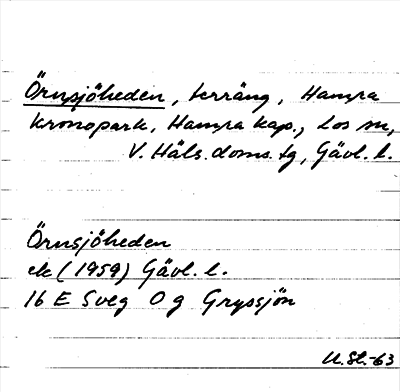 Örnsjöheden, terräng, Hamra
kronopark, Hamra kap., Los sn,
V. Häls. doms. tg, Gävl. l.
Örnsjöheden
ek (1959) Gävl. l.
16 E Sveg 0 g Gryssjön
U.St.-63